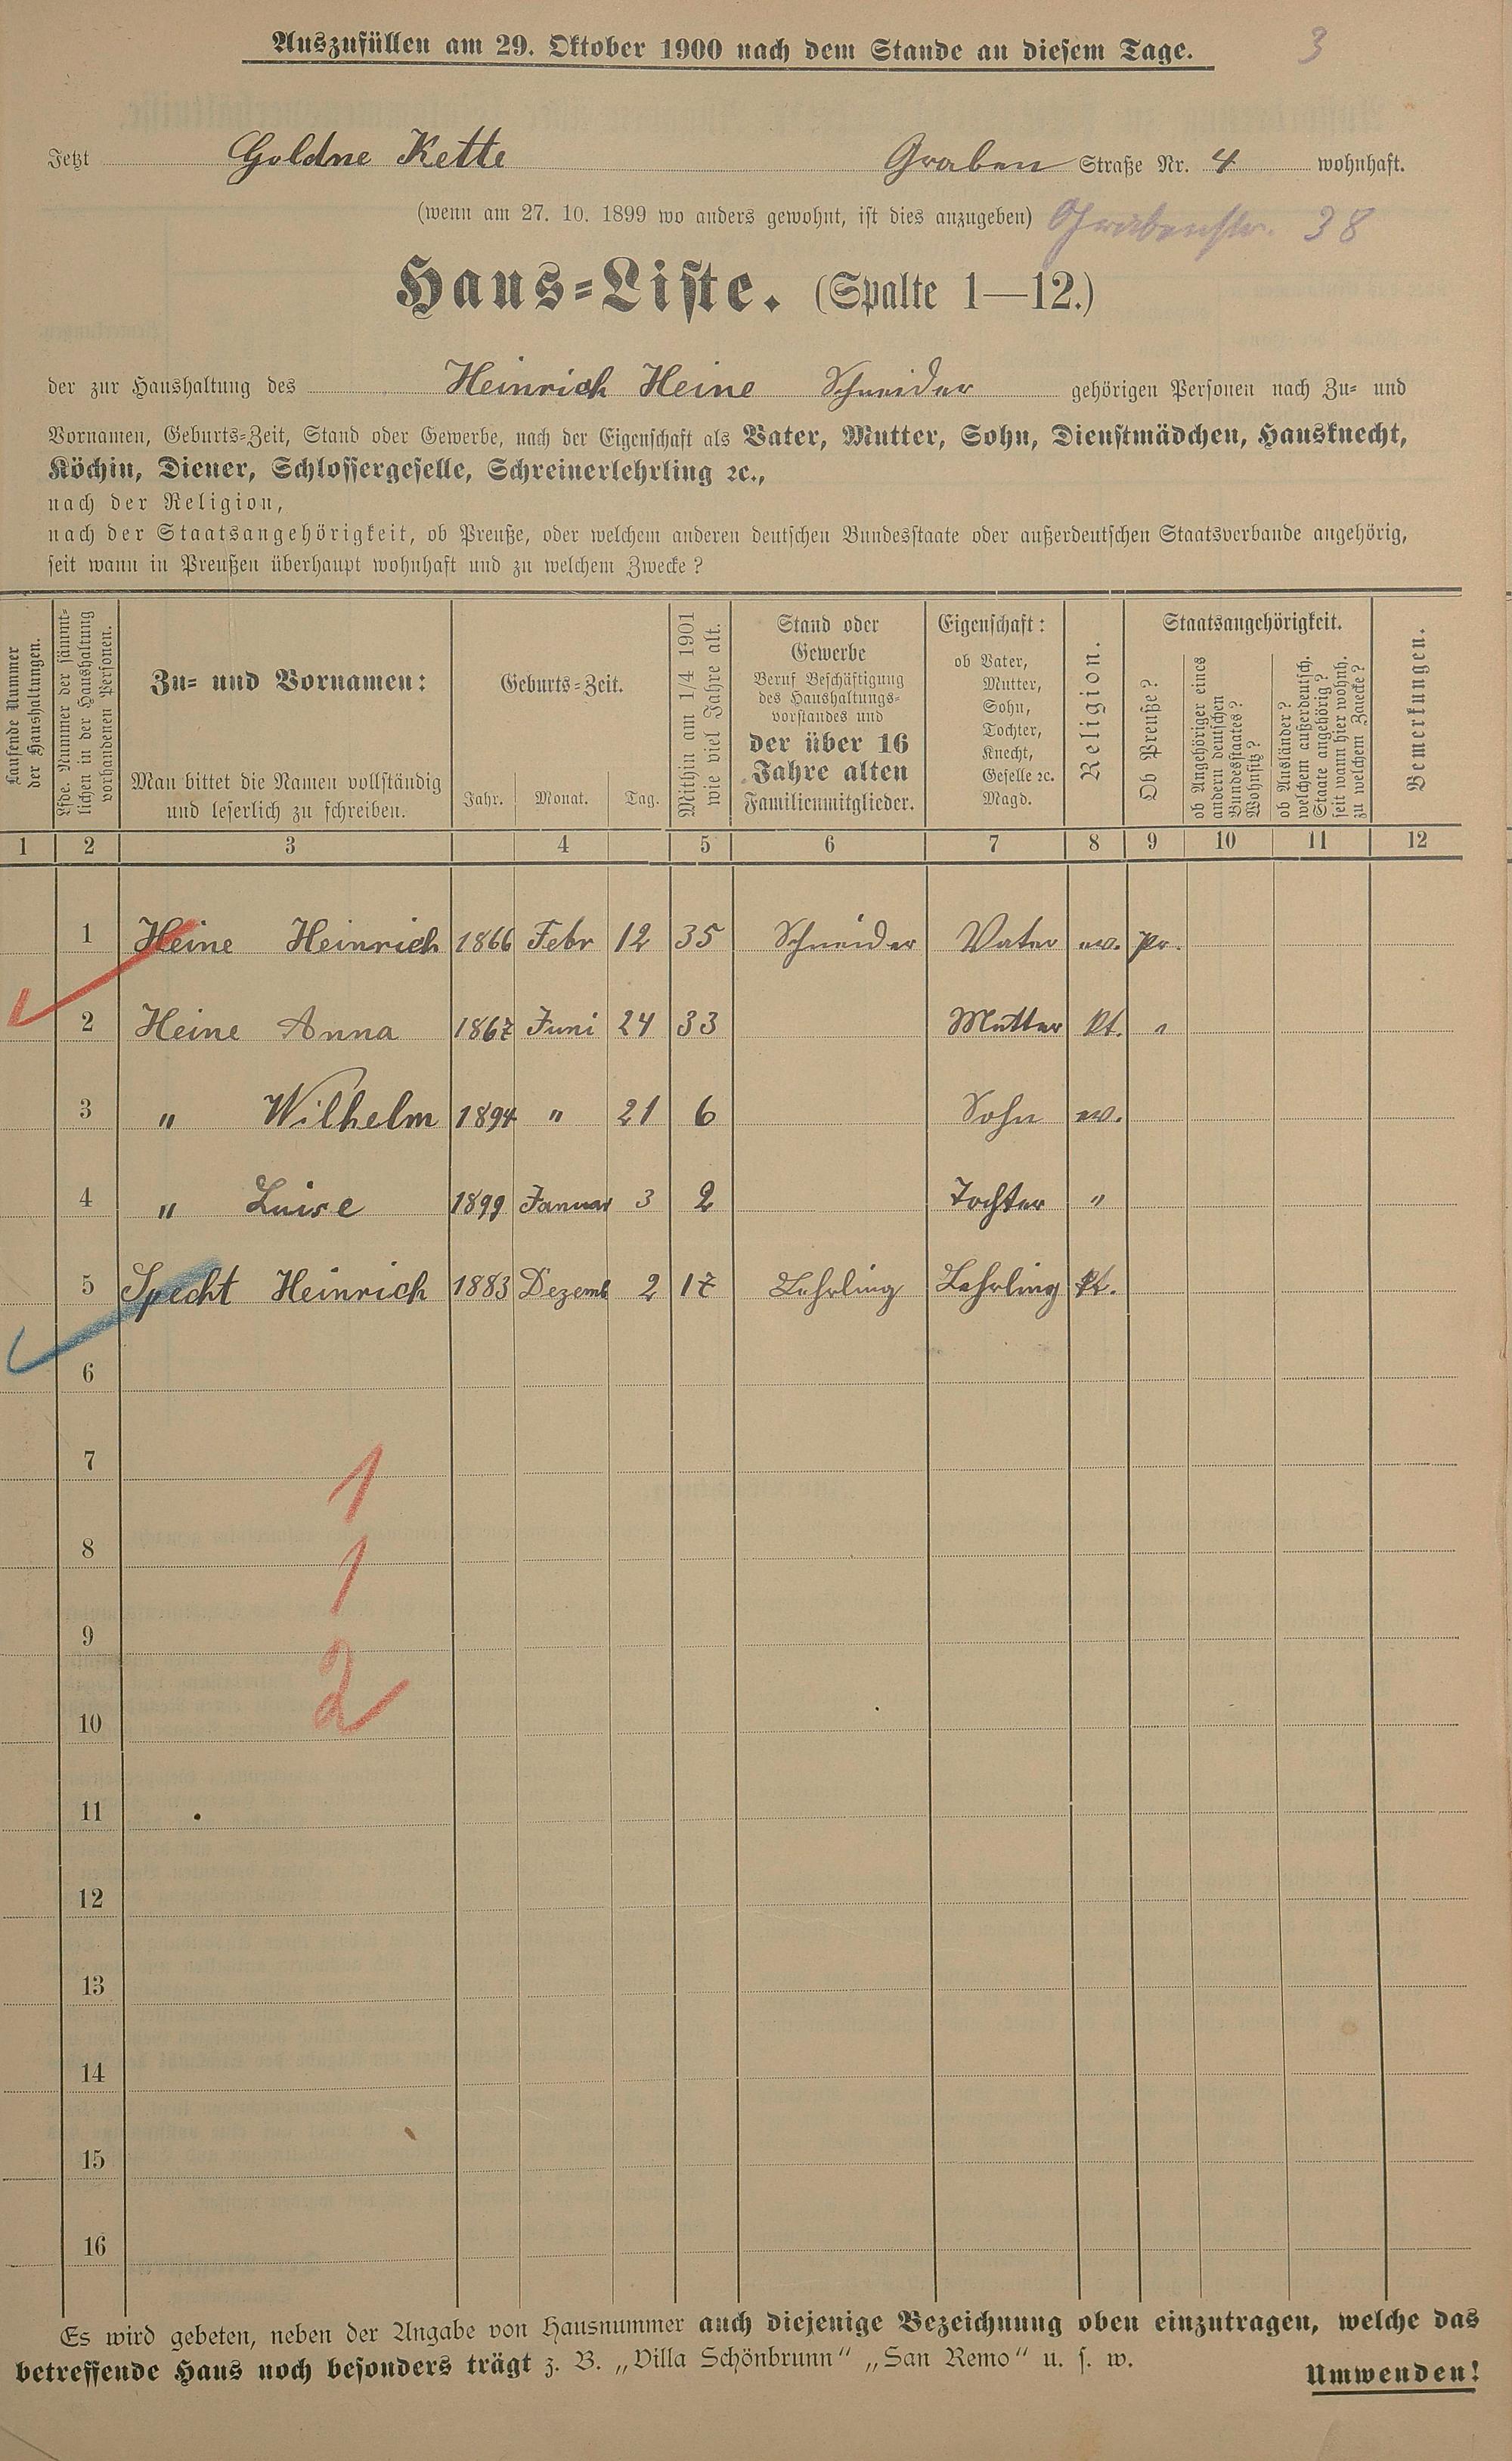 Auszufüllen am 29. Oktober 1900 nach dem Stande an diesem Tage.
3
Jetzt Goldne Kette Graben Straße Nr. 4 wohnhaft.
(wenn am 27. 10. 1899 wo anders gewohnt, ist dies anzugeben) Grabenstr. 38
Haus-Liste. (Spalte 1—12.)
der zur Haushaltung des Heinrich Heine Schneider gehörigen Personen nach Zu- und
Vornamen, Geburts-Zeit, Stand oder Gewerbe, nach der Eigenschaft als Vater, Mutter, Sohn, Dienstmädchen, Hausknecht,
Köchin, Diener, Schlossergeselle, Schreinerlehrling ꝛc.,
nach der Religion,
nach der Staatsangehörigkeit, ob Preuße, oder welchem anderen deutschen Bundesstaate oder außerdeutschen Staatsverbande angehörig,
seit wann in Preußen überhaupt wohnhaft und zu welchem Zwecke?
Laufende Nummer
der Haushaltungen.
Lfde. Nummer der sämmt-
lichen in der Haushaltung
vorhandenen Personen.
Zu- und Vornamen:
Man bittet die Namen vollständig
und leserlich zu schreiben.
Geburts-Zeit.
Jahr. Monat. Tag.
Mithin am 1/4 1901
wie viel Jahre alt.
Stand oder
Gewerbe
Beruf Beschäftigung
des Haushaltungs-
vorstandes und
der über 16
Jahre alten
Familienmitglieder.
Eigenschaft:
ob Vater,
Mutter,
Sohn,
Tochter,
Knecht,
Geselle ꝛc.
Magd.
Religion.
Staatsangehörigkeit.
Ob Preuße?
ob Angehöriger eines
andern deutschen
Bundesstaates?
Wohnsitz?
ob Ausländer?
welchem außerdeutsch.
Staate angehörig?
seit wann hier wohnh.
zu welchem Zwecke?
Bemerkungen.
1 2 3 4 5 6 7 8 9 10 11 12
1 Heine Heinrich 1866 Febr 12 35 Schneider Vater ev. Pr.
2 Heine Anna 1867 Juni 24 33 Mutter kt. "
3 " Wilhelm 1894 " 21 6 Sohn ev.
4 " Luise 1899 Januar 3 2 Tochter "
5 Specht Heinrich 1883 Dezemb 2 17 Lehrling Lehrling kt.
6
7
1
8
1
9
2
10
11
12
13
14
15
16
Es wird gebeten, neben der Angabe von Hausnummer auch diejenige Bezeichnung oben einzutragen, welche das
betreffende Haus noch besonders trägt z. B. „Villa Schönbrunn" „San Remo" u. s. w.
Umwenden!